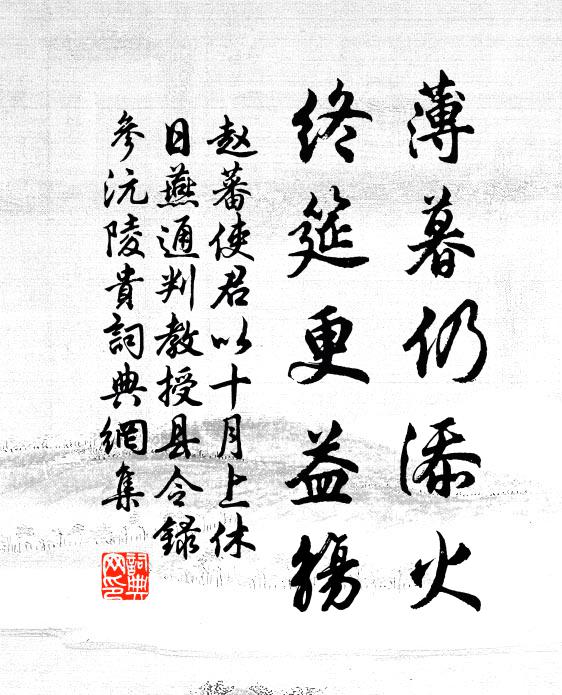 薄暮仍添火
終筵更益觴
赵蕃使君以十月上休
日燕通判教授县令錄
參沅陵貴詞典網集
詞典网印